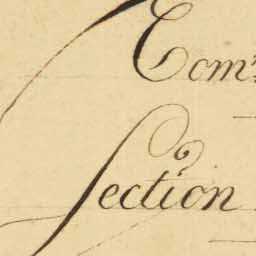 Com.
Section